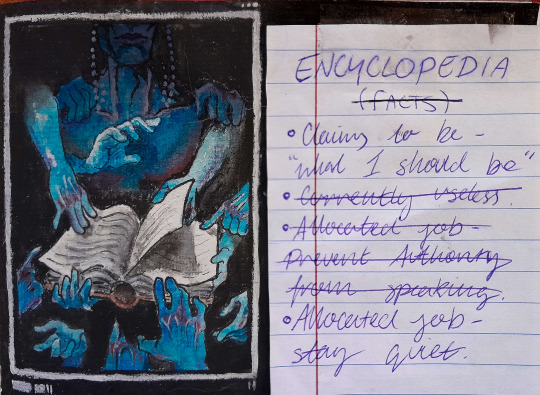 ENCYCLOPEDIA
(FACTS)
• Claims to be -
"what I should be"
• Currently useless.
• Allocated job -
prevent Authority
from speaking.
• Allocated job -
stay quiet.